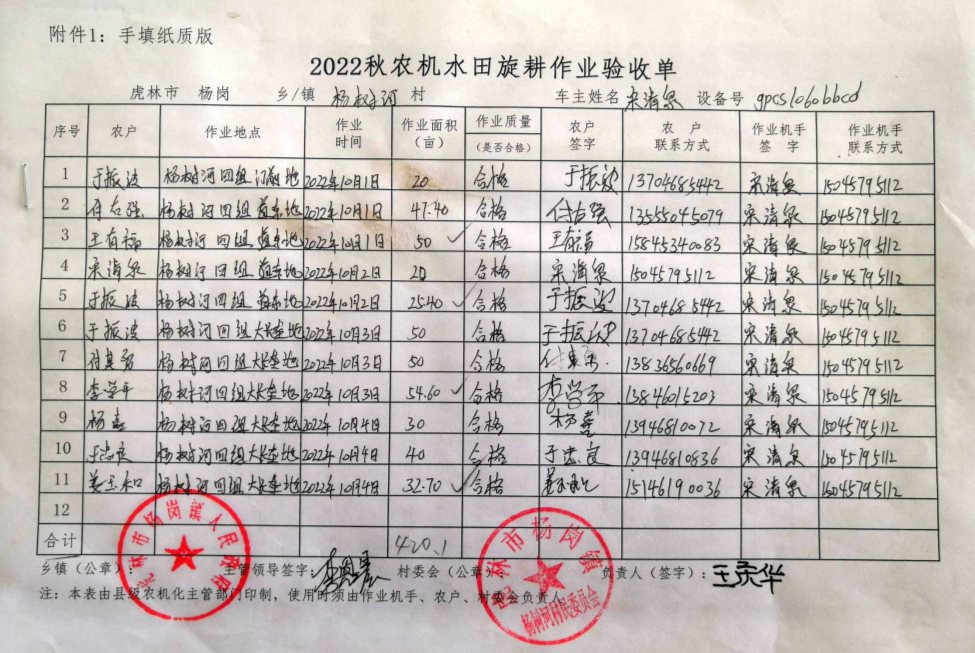 附件1：手填纸质版
2022秋农机水田旋耕作业验收单
虎林市 杨岗 乡/镇 杨树河 村 车主姓名 宋清泉 设备号 gpcs1060bbcd
序号 农户 作业地点 作业时间 作业面积（亩） 作业质量（是否合格） 农户签字 农户联系方式 作业机手签字 作业机手联系方式
1 于振波 杨树河四组门前地 2022年10月1日 20 合格 于振波 13704685442 宋清泉 15045795112
2 付右强 杨树河四组 2022年10月1日 47.40 合格 付右强 13555045079 宋清泉 15045795112
3 王有福 杨树河四组 2022年10月1日 50 合格 王有福 15845340083 宋清泉 15045795112
4 宋清泉 杨树河四组 2022年10月2日 20 合格 宋清泉 15045795112 宋清泉 15045795112
5 于振波 杨树河四组 2022年10月2日 25.40 合格 于振波 13704685442 宋清泉 15045795112
6 于振波 杨树河四组 2022年10月3日 50 合格 于振波 13704685442 宋清泉 15045795112
7 杨树河四组 2022年10月3日 50 合格 13836560669 宋清泉 15045795112
8 李学平 杨树河四组 2022年10月3日 54.60 合格 李学平 13846015203 宋清泉 15045795112
9 杨喜 杨树河四组 2022年10月4日 30 合格 杨喜 13946810072 宋清泉 15045795112
10 于忠良 杨树河四组 2022年10月4日 40 合格 于忠良 13946810836 宋清泉 15045795112
11 姜玉和 杨树河四组 2022年10月4日 32.70 合格 15146190036 宋清泉 15045795112
12
合计 420.1
乡镇（公章）： 主管领导签字： 村委会（公章）： 负责人（签字）：王宗华
虎林市杨岗镇人民政府
虎林市杨岗镇
杨树河村民委员会
注：本表由县级农机化主管部门印制，使用时须由作业机手、农户、村委会负责人